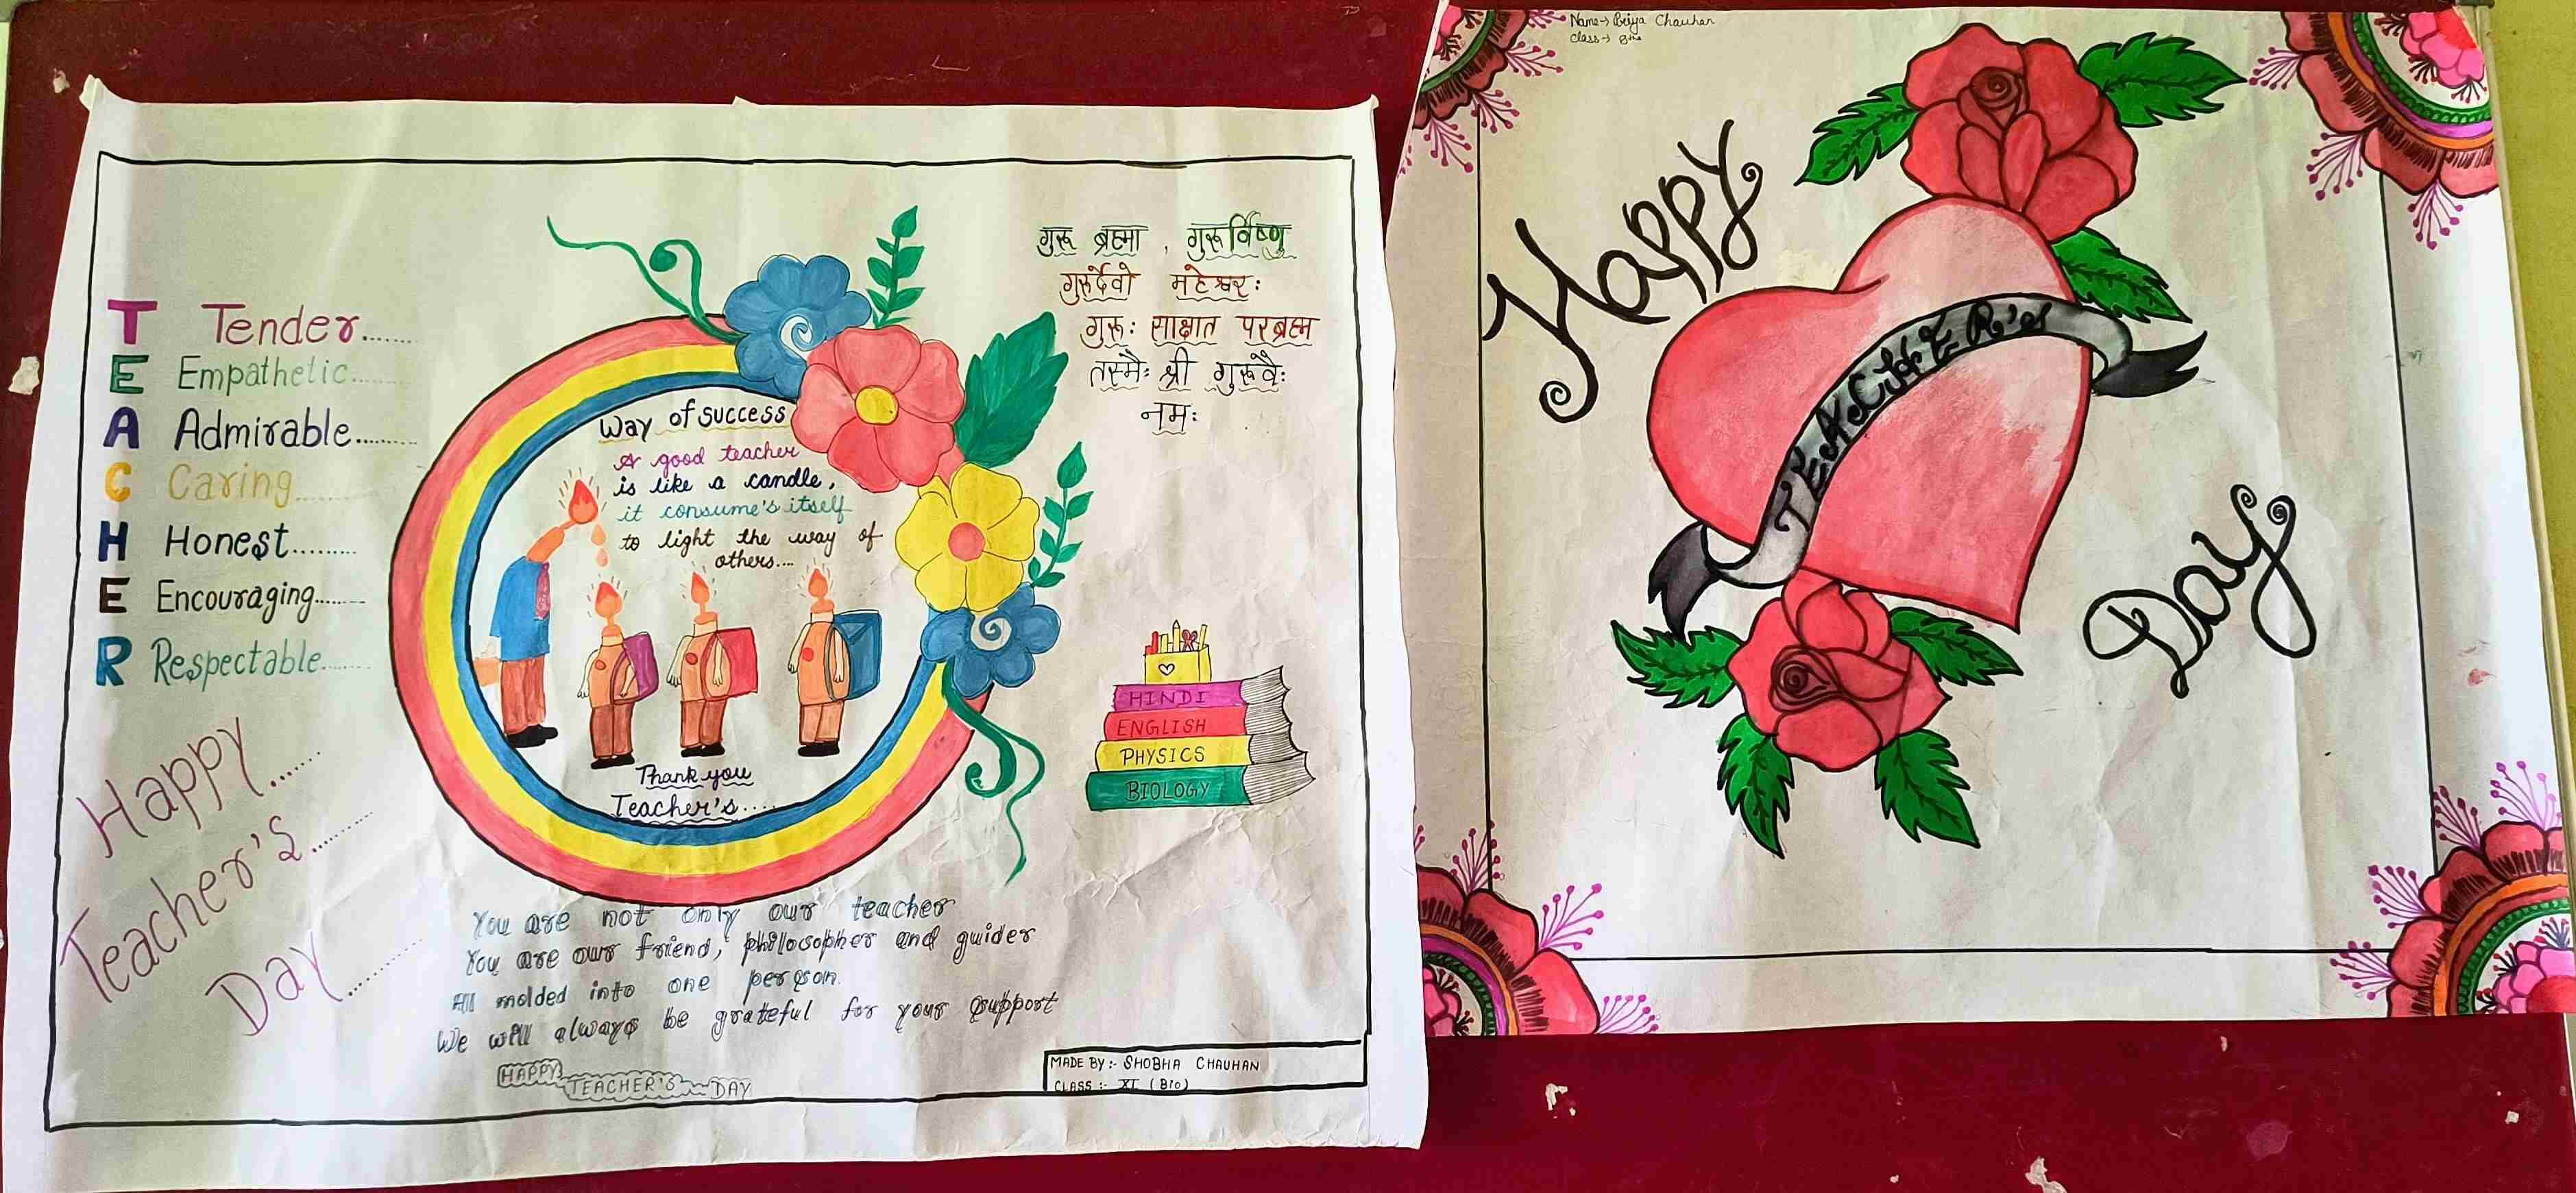 T Tender........
E Empathetic........
A Admirable.........
C Caring........
H Honest.........
E Encouraging........
R Respectable........
Happy......
Teacher's.......
Day.......
Way of success
A good teacher
is like a candle,
it consume's itself
to light the way of
others....
Thank you
Teacher's....
गुरू ब्रह्मा , गुरूर्विष्णु
गुरूर्देवो महेश्वर:
गुरू: साक्षात परब्रह्म
तस्मै: श्री गुरूवै:
नम:
HINDI
ENGLISH
PHYSICS
BIOLOGY
You are not only our teacher
You are our friend, philosopher and guider
All molded into one person.
We will always be grateful for your support
HAPPY TEACHER'S DAY
MADE BY :- SHOBHA CHAUHAN
CLASS :- XI (BIO)
Name→ Priya Chauhan
Class→
Happy
TEACHER's
Day